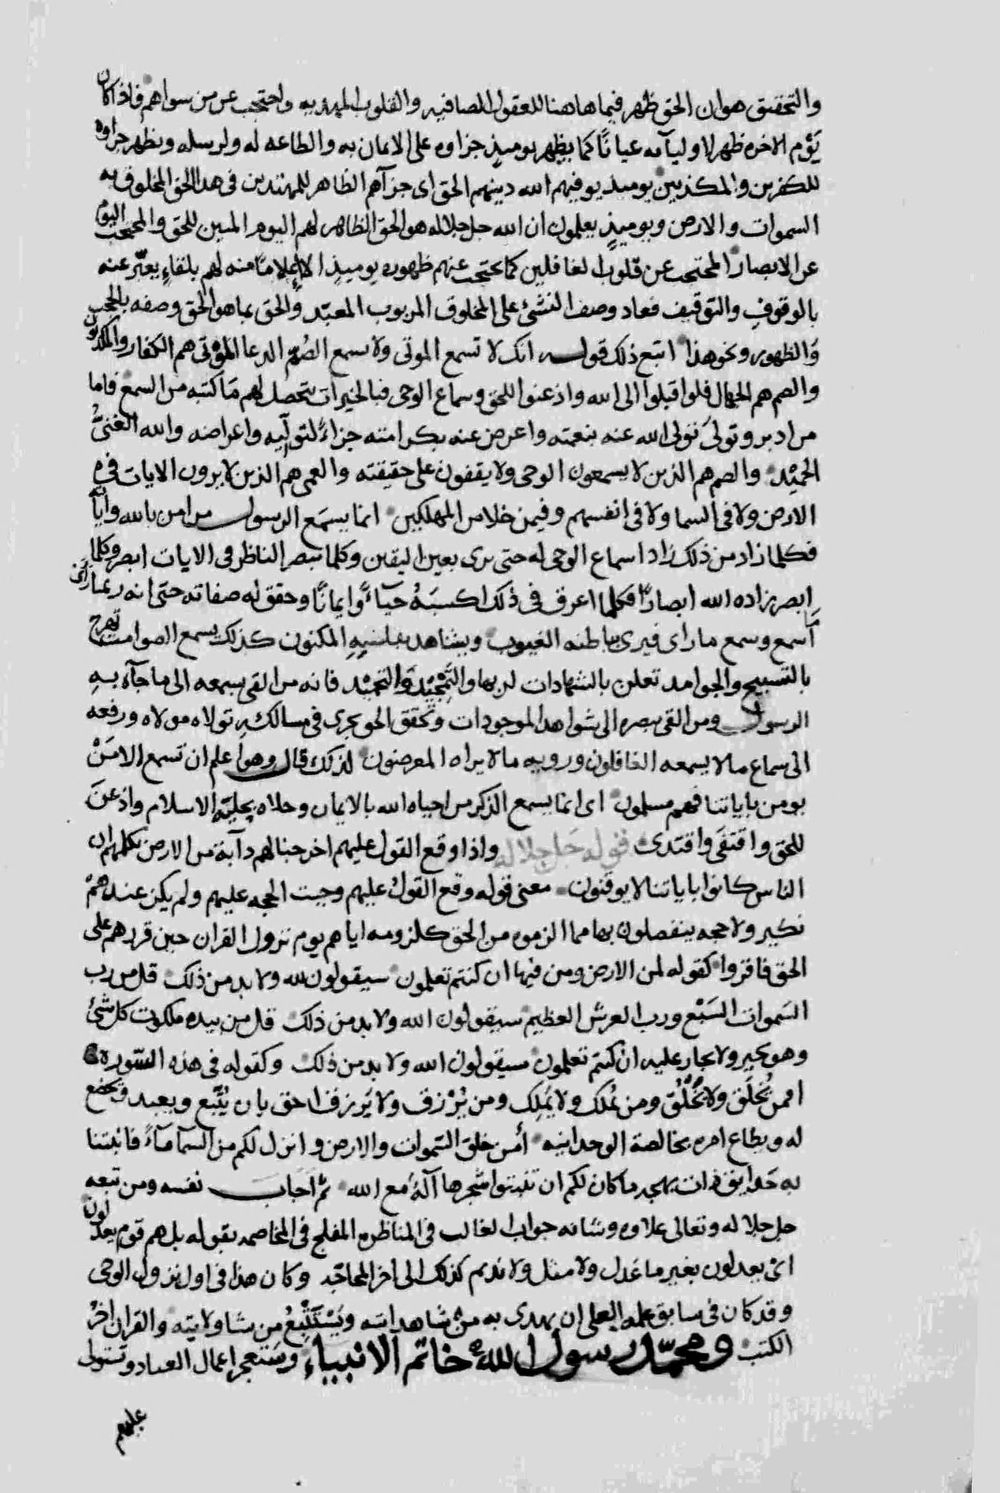 والتحقيق هو ان الحق ظهر فيما هاهنا للعقول الصافيه والقلوب المهديه واحتجب عن من سواهم فاذا كان
يَوْم الاخره ظهر لاوليآيه عيانًا كما يظهر يوميذٍ جزاوه على الايمان به والطاعه له ولرسله ويظهر جزاوه
للكفرين والمكذبين يوميذ يوفيهم الله دينهم الحق اى جزآهم الظاهر للمهتدين فى هذا الحق المخلوق به
السموات والارض ويوميذٍ يعلمون ان الله جل جلاله هو الحق الظاهر لهم اليوم المبين للحق والمحتجب اليوم
عن الابصار المحتجب عن قلوب الغافلين كما يحتجب عنهم ظهوره يوميذٍ الا إعلامًا منه لهم بلقاءٍ يعبّر عنه
بالوقوف والتوقيف فعاد وصف النشئ على المخلوق المربوب المعبّد والحق بما هو الحق وصفه بالحجب
والظهور ونحو هذا اتبع ذلك قوله انك لا تسمع الموتى ولا تسمع الصُمّ الدعا الموتى هم الكفار والمكذبون
والصم هم الجهال فلو اقبلوا الى الله واذعنوا للحق وسماع الوحى فبالخيرات يتحصل لهم مَا كتبه من السمع فاما
من ادبر وتولى تولى الله عنه بنعمته واعرض عنه بكرامته جزاءً لتوليه واعراضه والله الغنىُّ
الحَميْد والصم هم الذين لا يسمعون الوحى ولا يقفون على حقيقته والعمى هم الذين لا يرون الايات فى
الارض ولا فى السما ولا فى انفسهم وفيمن خلا من المهلكين انما يسمع الرسول من امن بالله واياته
فكلما زاد من ذلك زاد اسماع الوحى له حتى يرى بعين اليقين وكلما تبصر الناظر فى الايات ابصر وكلما
ابصر زاده الله ابصارًا فكلما اعرق فى ذلك اكسبَهُ حياءً وايمانًا وحقق له صفاته حتى انه ربما راى
ما اسمع وسمع ما راى فيرى بباطنه الغيوب ويشاهد بقلبهِ المكنون كذلك يسمع الصوامت تهرج
بالتسبيح والجوامد تعلن بالشهادات لربها والتمجيْد والتحميْد فانه من القى سمعه الى ما جآه بهِ
الرسول ومن القى بصره الى شواهد الموجودات وتحقق الحق يجرى فى مسالك تولاه مولاه ورفعه
الى سماع ما لا يسمعه الغافلون وروية ما لا يراه المعرضون لذلك قال وهو اعلم ان تسمع الا مَنْ
يومن باياتنا فهم مسلمون اى انما يسمع الذكر من احياه الله بالايمان وحلاه بحليةِ الاسلام واذعن
للحق واقتفَى واقتدى قوله جل جلاله واذا وقع القول عليهم اخرجنا لهم دآبة من الارض تكلمهم ان
الناس كانوا باياتنا لا يوقنون معنى قوله وقع القول عليهم وجبت الحجه عليهم ولم يكن عندهمْ
نكير ولا حجه ينفصلون بها مما الزموه من الحق كلزومه اياهم يوم نزول القران حين قررهم على
الحق فاقروا كقوله لمن الارض ومن فيها ان كنتم تعلمون سيقولون لله ولا بد من ذلك قل من رب
السَموات السَبْع ورب العرش العظيم سيقولون الله ولا بد من ذلك قل من بيده ملكوت كل شئ
وهو يجير ولا يجار عليه ان كنتم تعلمون سيقولون الله ولا بد من ذلك وكقوله فى هذه السّوره
افمن يُخلَق ولا يَخْلُق ومن يُملك ولا يَملِك ومن يُرْزق ولا يَرزق احق بان يُتّبع ويعبد ويخضع
له ويطاع امره بخالصة الوحدانيه أمّن خلق السّموات والارض وانزل لكم من السّمآ مآءً فانبتنا
به حَدايق ذات بهجه ما كان لكم ان تنبتوا شجرها آلهٌ مع الله ثم اجَابَ نفسه ومن تبعه
جل جلاله وتعالى علاوه وشانه جواب الغالب فى المناظره المفلج فى المخاصمه بقوله بل هم قوم يعدلون
اىْ يعدلون بغير ما عدل ولا مثل ولا نديم كذلك الى اخر المحاجّه وكان هذا فى اول نزول الوحى
وقد كان فى سابق علمه العلى ان يهدى به منْ شا هدايته ويَسْتَتْبعُ من شا ولايته والقران اخرُ
الكتب ومحمّد رسول الله خاتم الانبياء وستعجم اعمال العباد وتستولى
عليهم